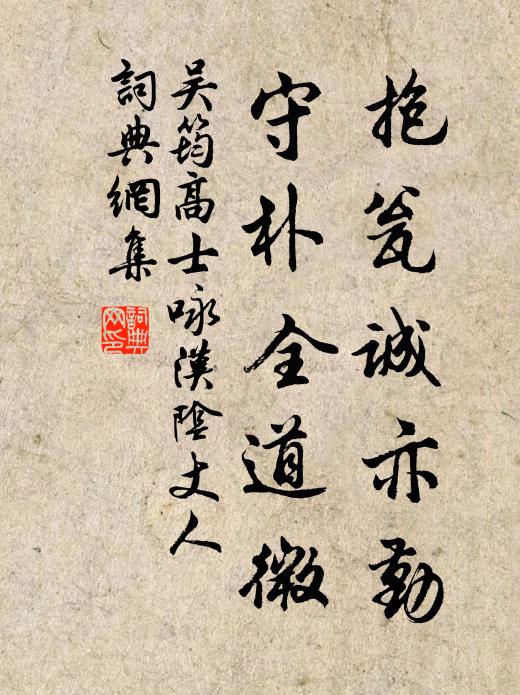 抱瓮誠亦勤
守朴全道微
吴筠高士咏漢陰丈人
詞典網集
詞典网印